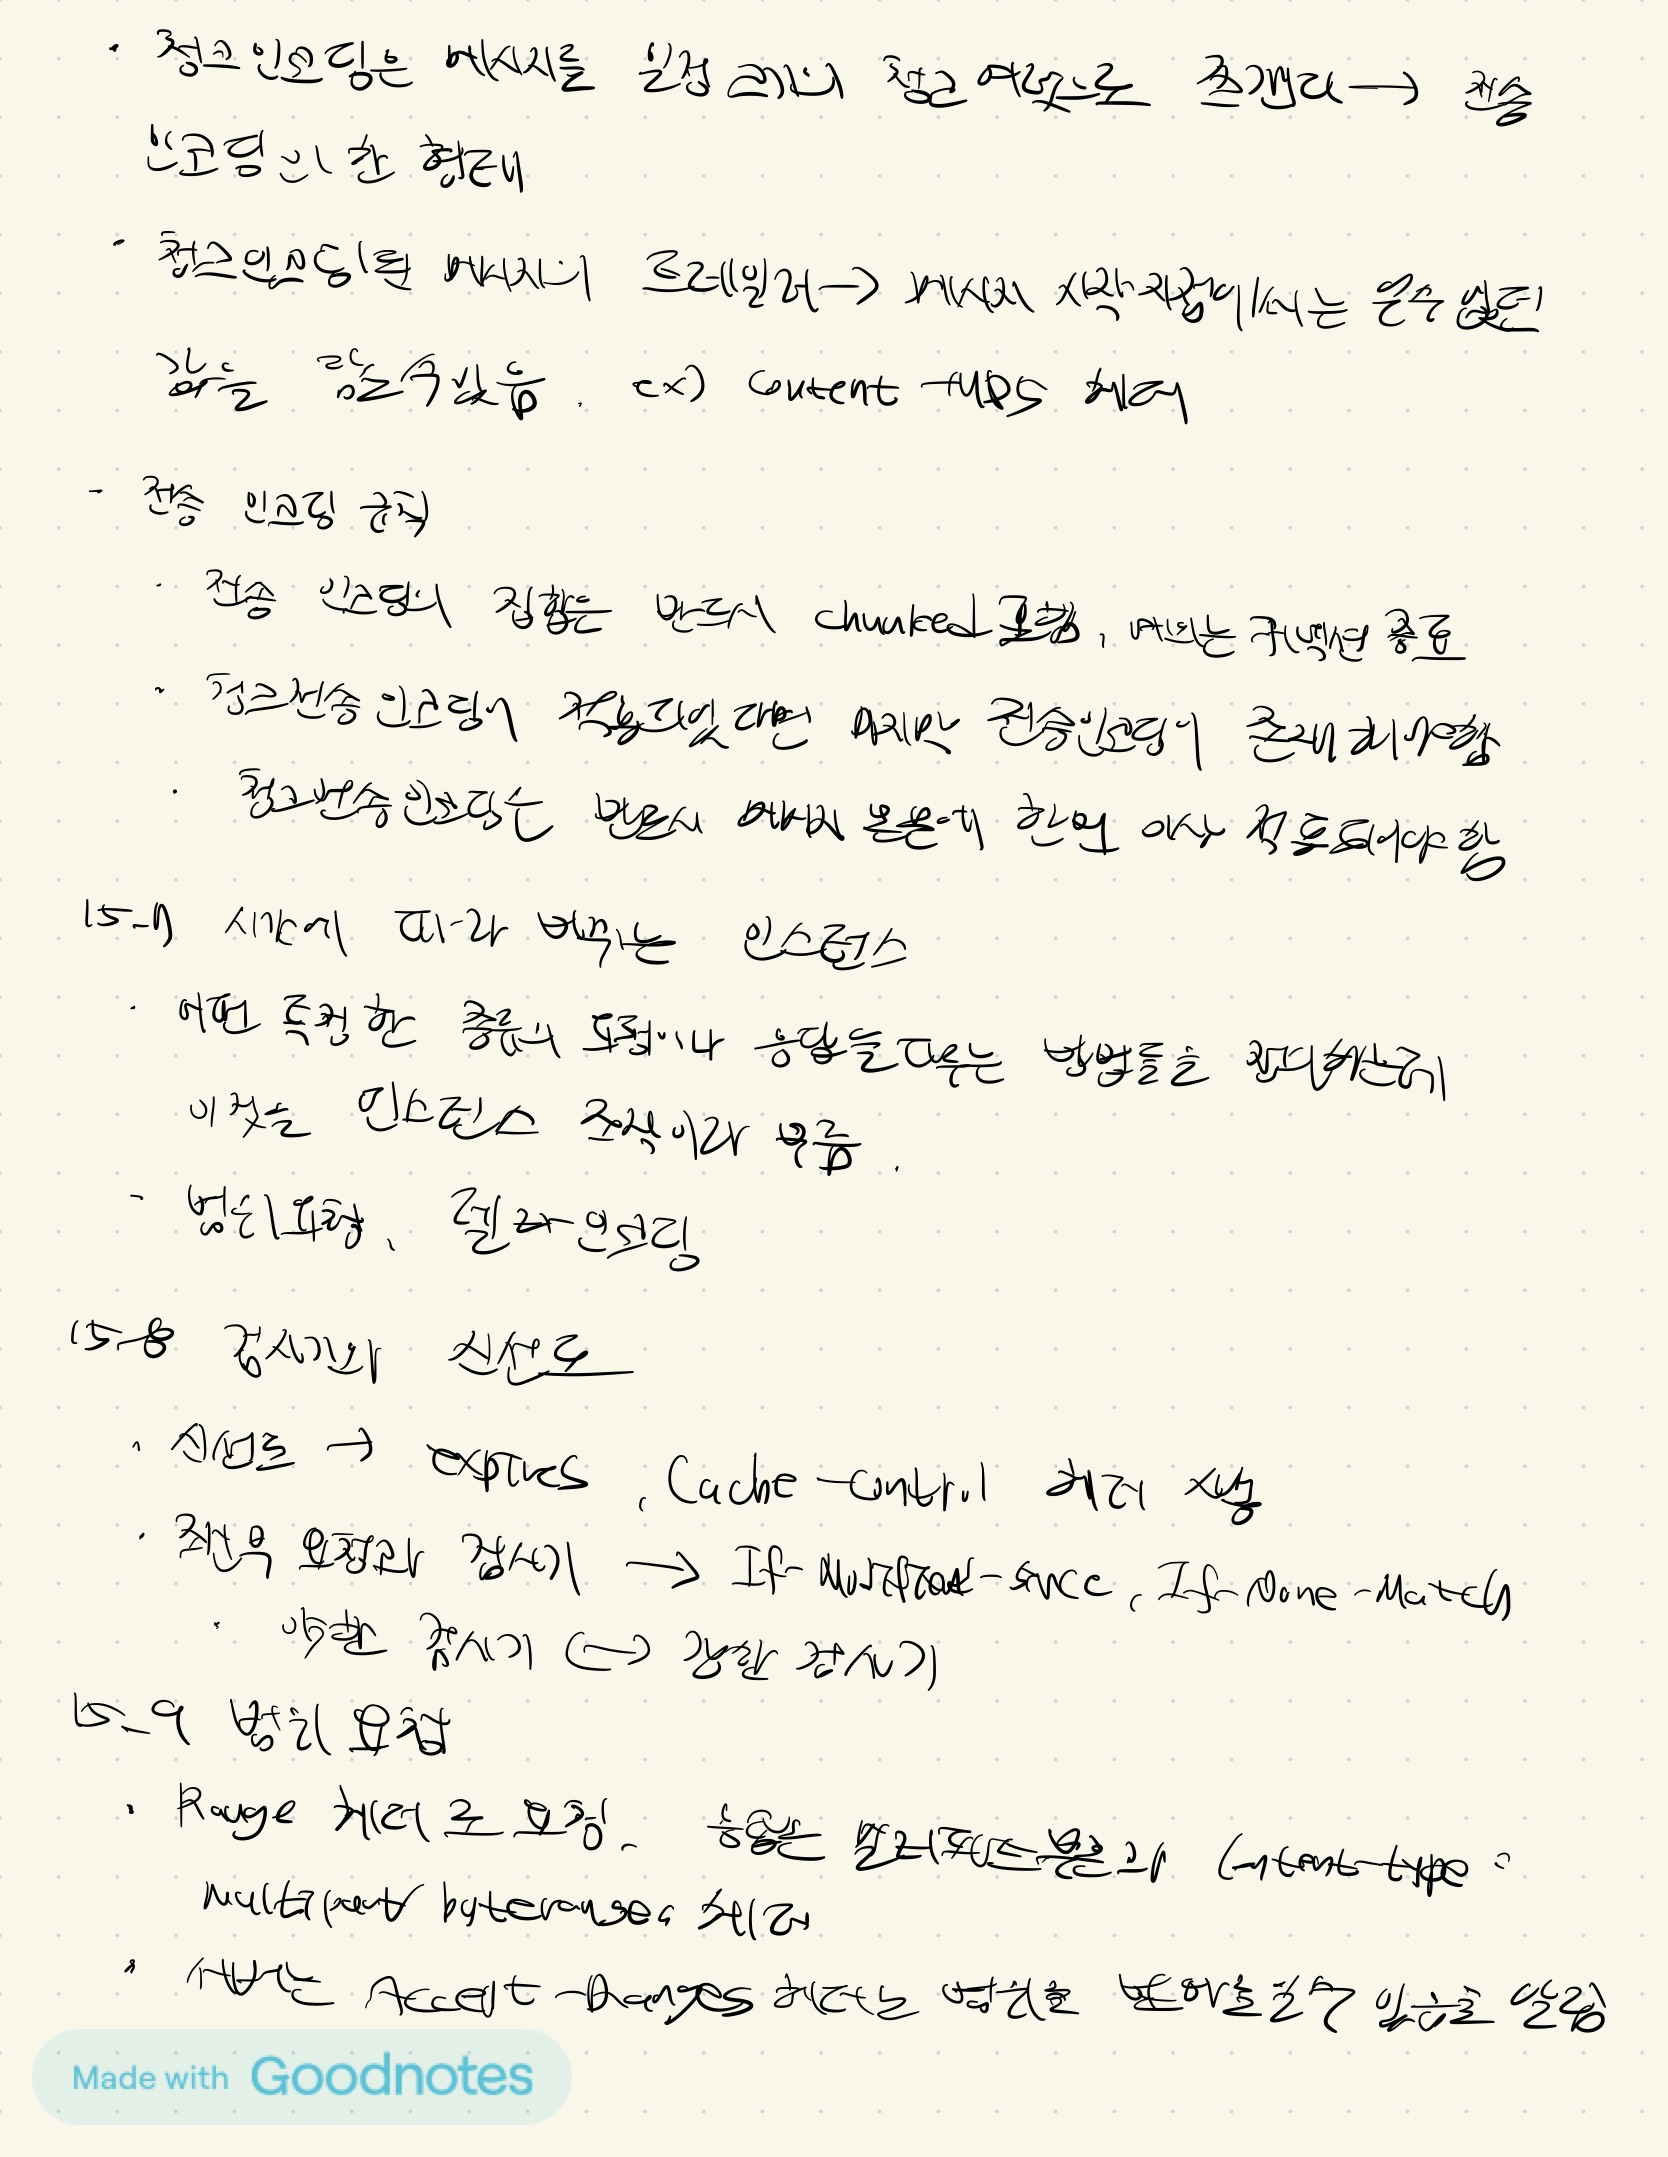 · 청크인코딩은 메시지를 일정 크기의 청크 여럿으로 쪼갠다 → 전송
인코딩의 한 형태
· 청크인코딩된 메시지의 트레일러 → 메시지 시작지점에서는 알수 없던
값을 담을수있음. ex) Content-MD5 헤더
- 전송 인코딩 규칙
· 전송 인코딩의 집합은 반드시 chunked 포함, 예외는 커넥션 종료
· 청크전송 인코딩이 적용되있다면 마지막 전송인코딩이 존재해야함
· 청크전송인코딩은 반드시 메시지 본문에 한번 이상 적용되어야 함
15-7 시간에 따라 바뀌는 인스턴스
· 어떤 특정한 종류의 요청이나 응답을 다루는 방법들을 정의하는데
이것을 인스턴스 조작이라 부름.
- 범위요청, 델타인코딩
15-8 검사기와 신선도
· 신선도 → expires, Cache-Control 헤더 사용
· 조건부 요청과 검사기 → If-Modified-Since, If-None-Match
· 약한 검사기 ↔ 강한 검사기
15-9 범위 요청
· Range 헤더로 요청, 응답은 멀티파트 본문과 Content-type:
Multipart byteranges 헤더
· 서버는 Accept-Ranges 헤더로 범위를 받아들일수 있음을 알림
Made with Goodnotes